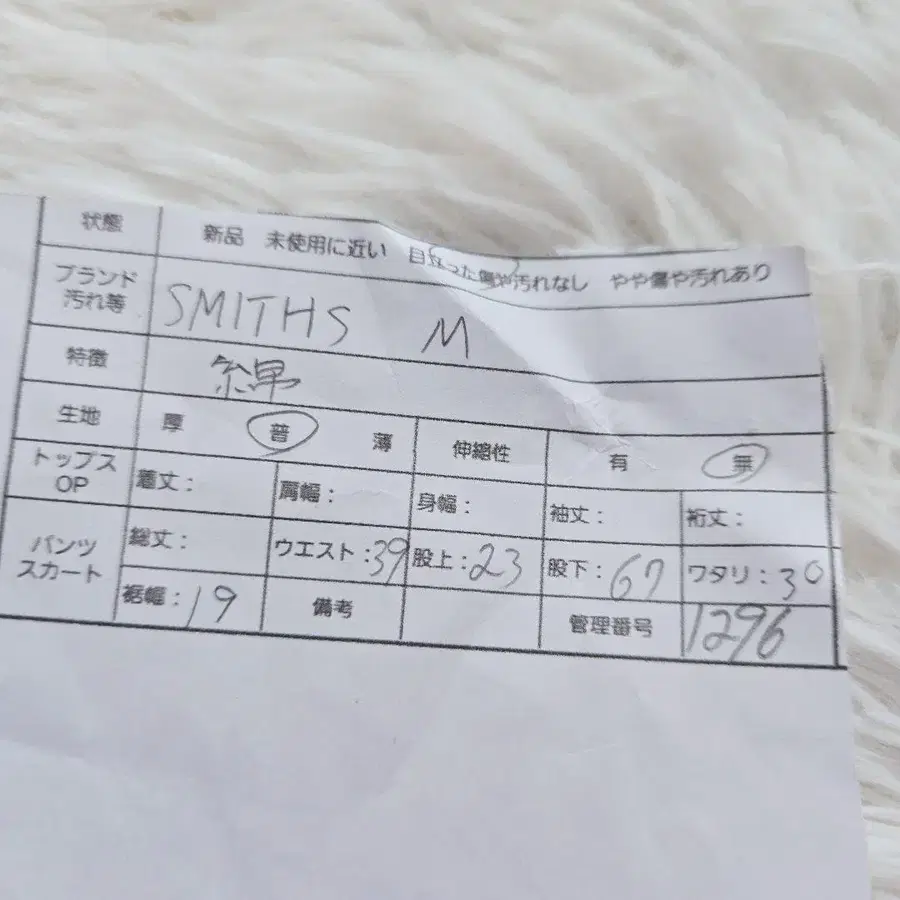 状態 新品 未使用に近い 目立った傷や汚れなし やや傷や汚れあり
ブランド 汚れ等 SMITHS M
特徴 綿
生地 厚 普 薄 伸縮性 有 無
トップス OP 着丈: 肩幅: 身幅: 袖丈: 裄丈:
パンツ スカート 総丈: ウエスト:39 股上:23 股下:67 ワタリ:30
裾幅:19 備考 管理番号 1296